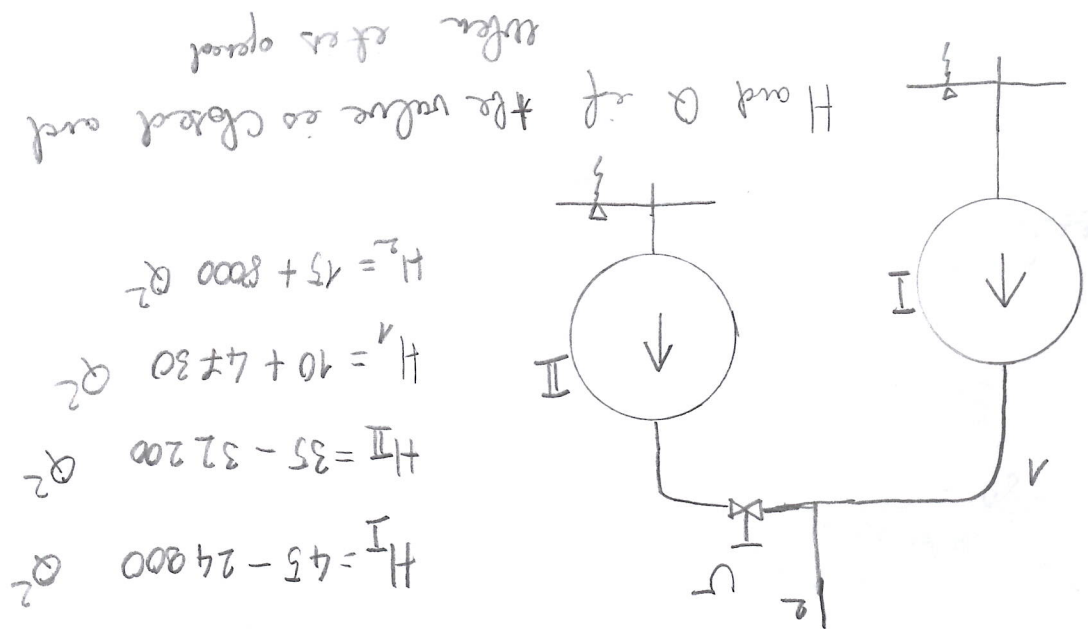 2
1
H_I = 45 - 24 900 Q²
H_II = 35 - 32 200 Q²
II
H₁ = 10 + 4730 Q²
I
H₂ = 15 + 8000 Q²
H and Q if the valve is closed and
when it is opened